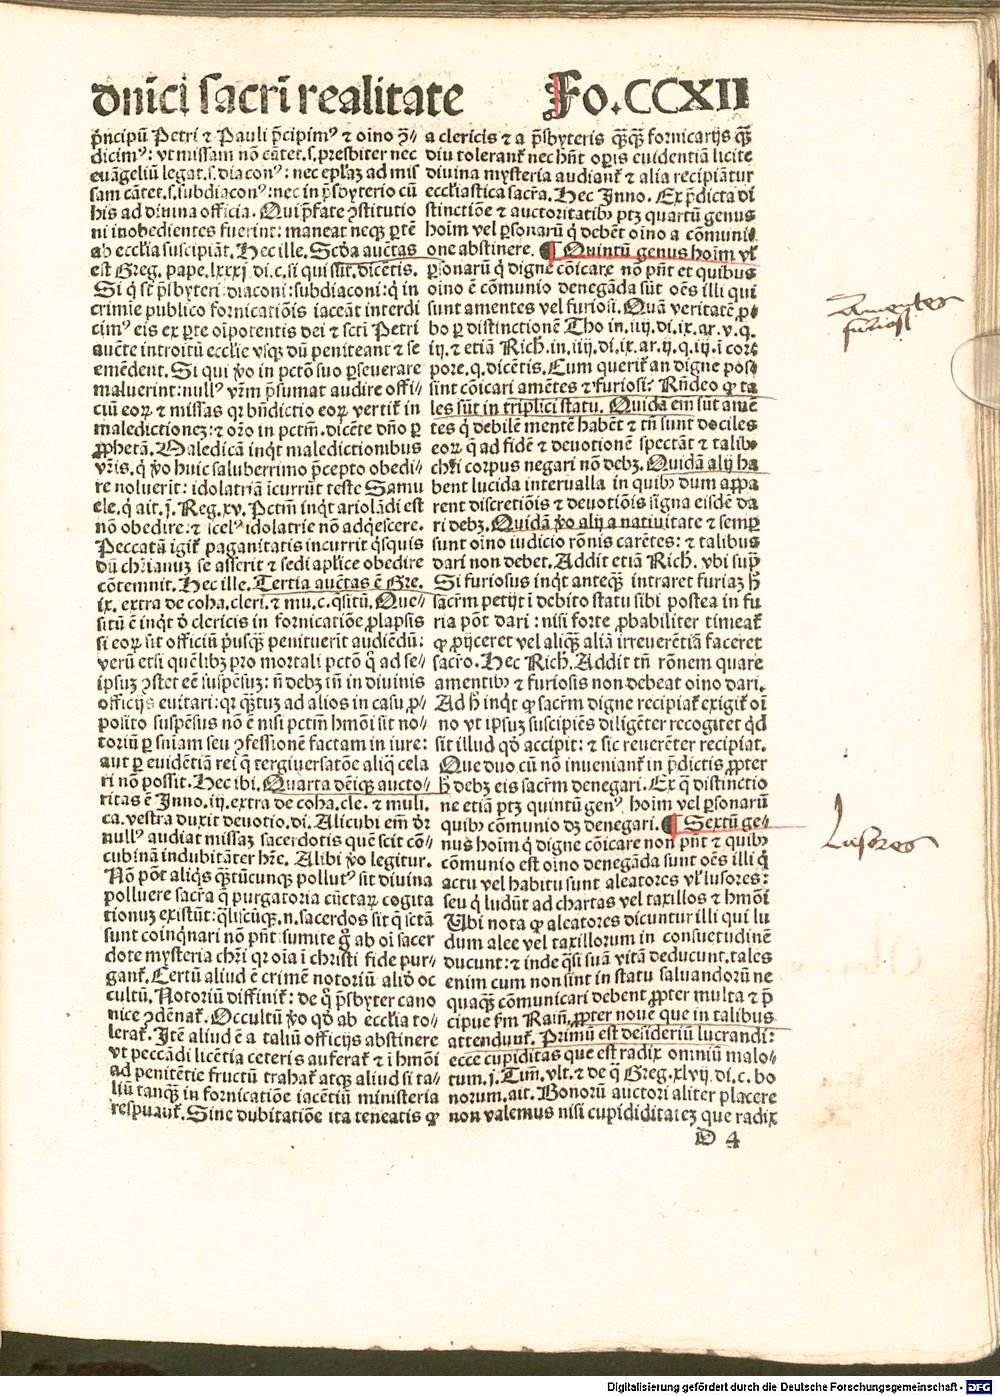 dnĩci sacrĩ realitate Fo.CCXII
p̃ncipũ Petri ⁊ Pauli p̃cipimꝰ ⁊ oĩno ꝯ̃-
dicimꝰ: vt missam nõ cãtet.s.presbiter nec
euãgeliũ legat.s.diaconꝰ: nec ep̃laꝫ ad mis
sam cãtet.s.subdiaconꝰ: nec in p̃sbyterio cũ
his ad diuina officia. Qui p̃fate ꝯstitutio
ni inobedientes fuerint: maneat neqꝫ ꝑtẽ
ab ecclia suscipiãt. Hec ille. Scđa auẽtas
est Greg. pape.lxxxj di.c.si qui sũt.dicẽtis.
Si q̃ sẽ p̃sbyteri: diaconi: subdiaconi: q̃ in
crimie publico fornicatiõis iaceãt interdi
cimꝰ eis ex ꝑte oĩpotentis dei ⁊ scti Petri
auẽte introitũ ecclie vsqꝫ dũ peniteant ⁊ se
emẽdent. Si qui ꝟo in pctõ suo ꝑseuerare
maluerint: nullꝰ vr̃m p̃sumat audire offi-
ciũ eoꝝ ⁊ missas qr bñdictio eoꝝ vertit̃ in
maledictionez: ⁊ orõ in pctm̃.dicẽte dño ꝑ
ꝓphetã. Maledicã inqt̃ maledictionibus
vr̃is.q̃ ꝟo huic saluberrimo p̃cepto obedi-
re noluerit: idolatriã ĩcurrũt teste Samu
ele.q̃ ait.j.Reg.xv. Pctm̃ inqt̃ ariolãdi est
nõ obedire: ⁊ scelꝰ idolatrie nõ adq̃escere.
Peccatũ igit̃ paganitatis incurrit q̃squis
dũ chr̃ianuꝫ se asserit ⁊ sedi aplice obedire
cõtemnit. Hec ille. Tertia auẽtas ẽ Gre.
ix. extra de coha.cleri. ⁊ mu.c.q̃sitũ. Que-
sitũ ẽ inqt̃ đ clericis in fornicatiõe ꝓlapsis
si eoꝝ sit officiũ p̃usqꝫ penituerit audiẽdũ:
verũ etsi quẽlibꝫ pro mortali pctõ q̃ ad se-
ipsuꝫ ꝯstet eẽ suspẽsuꝫ: ñ debꝫ tñ in diuinis
officijs euitari: qr qꝫtuꝫ ad alios in casu ꝓ-
posito suspẽsus nõ ẽ nisi pctm̃ hmõi sit no-
toriũ ꝑ sniam seu ꝯfessionẽ factam in iure:
aut ꝑ euidẽtiã rei q̃ tergiuersatõe aliq̃ cela
ri nõ possit. Hec ibi. Quarta deĩqꝫ aucto-
ritas ẽ Inno.iij.extra de coha.cle. ⁊ muli.
ca.vestra duxit deuotio.di. Alicubi em̃ đr
nullꝰ audiat missaꝫ sacerdotis quẽ scit cõ-
cubinã indubitãter hr̃e. Alibi ꝟo legitur.
Nõ põt aliq̃s qꝫtũcunqꝫ pollutꝰ sit diuina
polluere sacra q̃ purgatoria cũctaꝝ cogita
tionuꝫ existũt: q̃liscũqꝫ.n.sacerdos sit q̃ sctã
sunt coinq̃nari nõ pñt: sumite gͦ ab oi sacer
dote mysteria chr̃i qr oia ĩ christi fide pur-
gant̃. Certũ aliud ẽ crimẽ notoriũ aliđ oc
cultũ. Notoriũ diffinit̃: de q̃ p̃sbyter cano
nice ꝯdẽnat̃. Occultũ ꝟo qđ ab ecclia to-
lerat̃. Itẽ aliud ẽ a taliũ officijs abstinere
vt peccãdi licẽtia ceteris auferat̃ ⁊ ĩ hmõi
ad penitẽtie fructũ trahat̃ atqꝫ aliud si ta-
liũ tanqꝫ in fornicatiõe iacẽtiũ ministeria
respuant̃. Sine dubitatiõe ita teneatis ꝙ
a clericis ⁊ a p̃sbyteris qꝫqꝫ fornicarijs qꝫ
diu tolerant̃ nec hñt oꝑis euidentiã licite
diuina mysteria audiant̃ ⁊ alia recipiãtur
eccliastica sacr̃a. Hec Inno. Ex p̃dicta di
stinctiõe ⁊ auctoritatibꝰ ptꝫ quartũ genus
hoĩm vel ꝑsonarũ q̃ debẽt oĩno a cõmuni
one abstinere. ¶ Quintũ genus hoĩm vl̃
ꝑsonarũ q̃ digne cõicare nõ pñt et quibus
oĩno ẽ cõmunio denegãda sũt oẽs illi qui
sunt amentes vel furiosi. Quã veritatẽ ꝓ-
bo ꝑ distinctionẽ Tho in.iiij.di.ix.ar.v.q.
iij. ⁊ etiã Rich.in.iiij.di.ix.ar.ij.q.iij.ĩ cor-
pore.q.dicẽtis. Cum querit̃ an digne pos-
sint cõicari amẽtes ⁊ furiosi? Rñdeo ꝙ ta
les sũt in triplici statu. Quidã em̃ sũt amẽ
tes q̃ debilẽ mentẽ habẽt ⁊ tñ sunt dociles
eoꝝ q̃ ad fidẽ ⁊ deuotionẽ spectãt ⁊ talibꝰ
chr̃i corpus negari nõ debꝫ. Quidã alij ha
bent lucida interualla in quibꝰ dum appa
rent discretiõis ⁊ deuotiõis signa eisdẽ da
ri debꝫ. Quidã ꝟo alij a natiuitate ⁊ semꝑ
sunt oĩno iudicio rõnis carẽtes: ⁊ talibus
dari non debet. Addit etiã Rich. vbi sup̃
Si furiosus inqt̃ anteqꝫ intraret furiaꝫ h̃
sacr̃m petijt ĩ debito statu sibi postea in fu
ria põt dari: nisi forte ꝓbabiliter timeat̃
ꝙ ꝓijceret vel aliqꝫ aliã irreuerẽtiã faceret
sacr̃o. Hec Rich. Addit tñ rõnem quare
amentibꝰ ⁊ furiosis non debeat oĩno dari.
Ad h̃ inqt̃ ꝙ sacr̃m digne recipiat̃ exigit̃ oĩ
no vt ipsuꝫ suscipiẽs diligẽter recogitet qđ
sit illud qđ accipit: ⁊ sic reuerẽter recipiat.
Que duo cũ nõ inueniant̃ in p̃dictis ꝓpter
h̃ debꝫ eis sacr̃m denegari. Ex q̃ distinctio
ne etiã ptꝫ quintũ genꝰ hoĩm vel ꝑsonarũ
quibꝰ cõmunio dꝫ denegari. ¶ Sextũ ge-
nus hoĩm q̃ digne cõicare non pñt ⁊ quibꝰ
cõmunio est oĩno denegãda sunt oẽs illi q̃
actu vel habitu sunt aleatores vl̃ lusores:
seu q̃ ludũt ad chartas vel taxillos ⁊ hmõi
Ubi nota ꝙ aleatores dicuntur illi qui lu
dum alee vel taxillorum in consuetudinẽ
ducunt: ⁊ inde q̃si suã vitã deducunt.tales
enim cum non sint in statu saluandorũ ne
quaqꝫ cõmunicari debent ꝓpter multa ⁊ p̃
cipue ẜm Raiñ. ꝓpter nouẽ que in talibus
attendunt̃. Primũ est desideriũ lucrandi:
ecce cupiditas que est radix omniũ malo-
tum.j.Tim̃.vlt. ⁊ de q̃ Greg.xlvij.di.c.bo
norum.ait. Bonorũ auctori aliter placere
non valemus nisi cupididitateꝫ que radix
D 4
Amentes
furiosi
Lusores
Digitalisierung gefördert durch die Deutsche Forschungsgemeinschaft - DFG